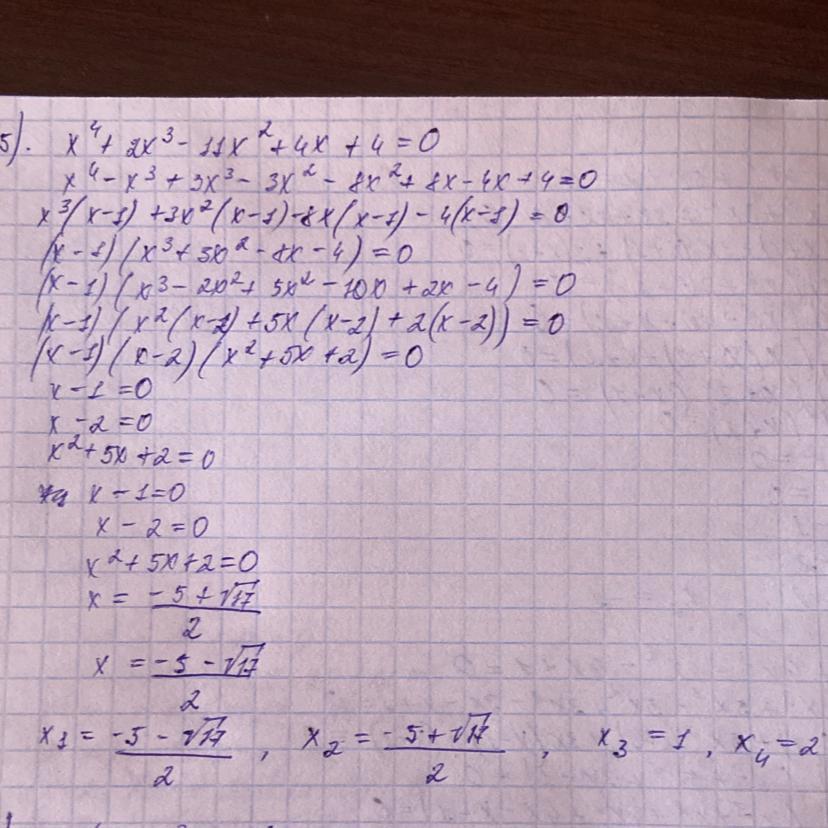 5). x⁴ + 2x³ - 11x² + 4x + 4 = 0
x⁴ - x³ + 3x³ - 3x² - 8x² + 8x - 4x + 4 = 0
x³(x-1) + 3x²(x-1) - 8x(x-1) - 4(x-1) = 0
(x-1)(x³ + 3x² - 8x - 4) = 0
(x-1)(x³ - 2x² + 5x² - 10x + 2x - 4) = 0
(x-1)(x²(x-2) + 5x(x-2) + 2(x-2)) = 0
(x-1)(x-2)(x² + 5x + 2) = 0
x - 1 = 0
x - 2 = 0
x² + 5x + 2 = 0
x - 1 = 0
x - 2 = 0
x² + 5x + 2 = 0
x = (-5 + √17)/2
x = (-5 - √17)/2
x₁ = (-5 - √17)/2, x₂ = (-5 + √17)/2, x₃ = 1, x₄ = 2